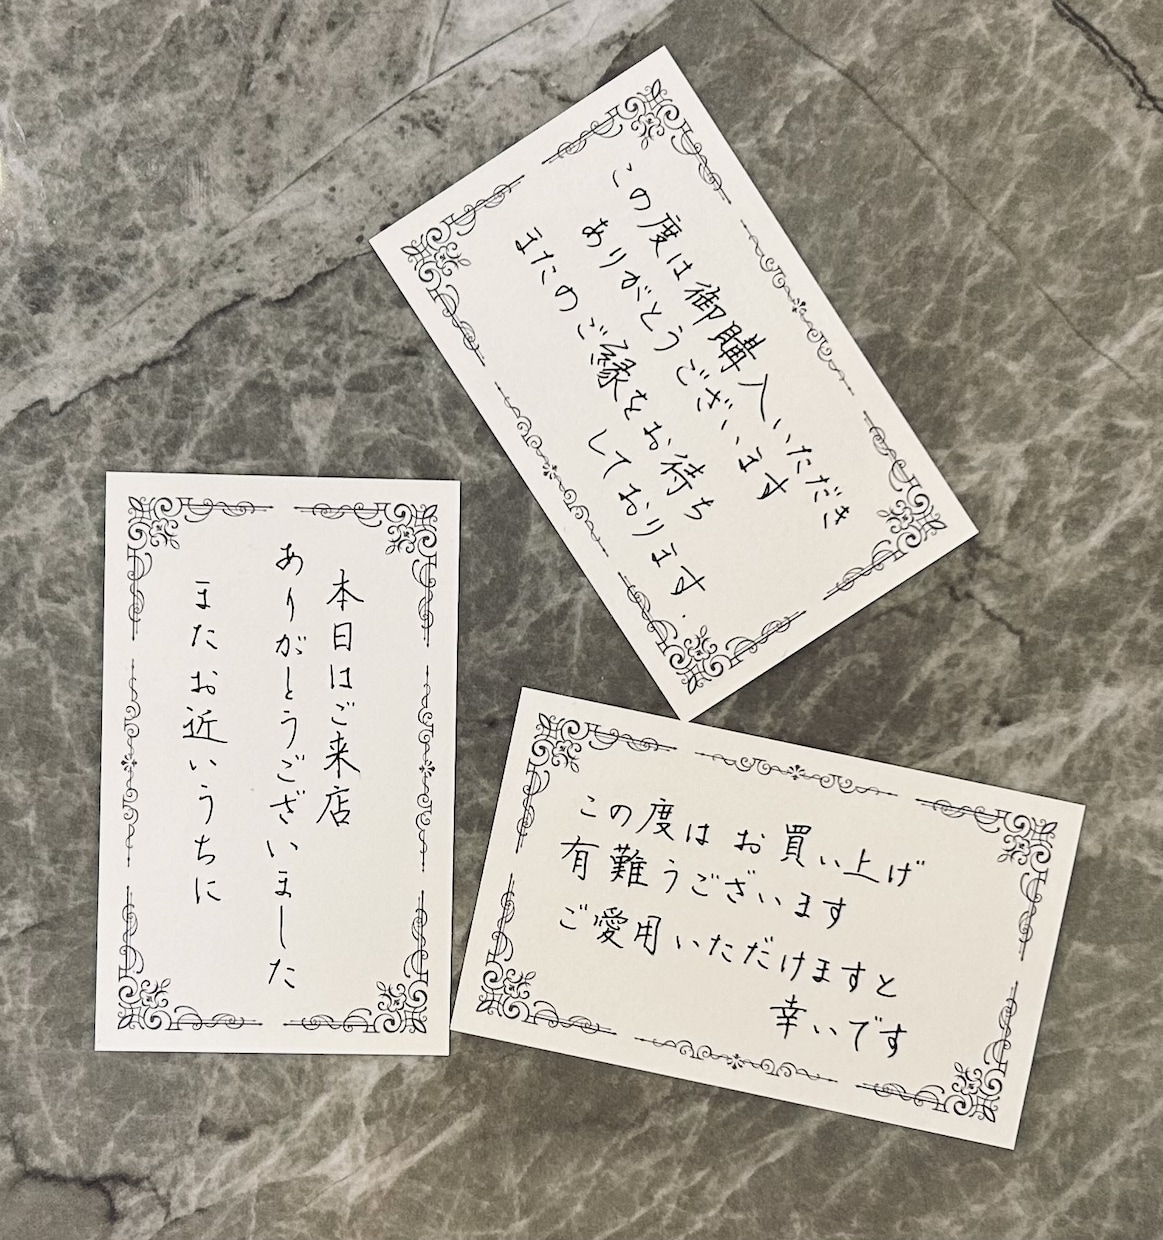 この度は御購入いただき
ありがとうございます
またのご縁をお待ち
しております.
本日はご来店
ありがとうございました
またお近いうちに
この度はお買い上げ
有難うございます
ご愛用いただけますと
幸いです